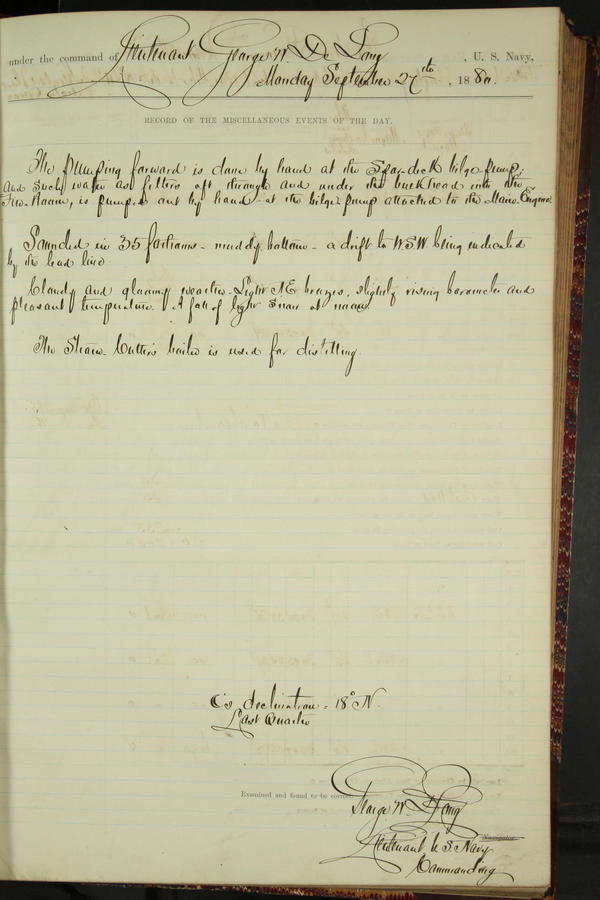 under the command of Lieutenant George W. De Long, U. S. Navy,
Monday September 27th, 1880.
RECORD OF THE MISCELLANEOUS EVENTS OF THE DAY.
The pumping forward is done by hand at the Spar-deck bilge pump;
and such water as filters aft through and under the bulkhead into the
Fire-Room, is pumped out by hand at the bilge pump attached to the Main Engine.
Sounded in 35 fathoms - muddy bottom - a drift to WSW being indicated
by the lead line.
Cloudy and gloomy weather. Light NE breezes, slightly rising barometer and
pleasant temperature. A fall of light snow at noon.
The Steam-Cutter's boiler is used for distilling.
☾'s declination = 18° N.
Last Quarter
Examined and found to be correct.
George W. De Long
Navigator.
Lieutenant U. S. Navy
Commanding